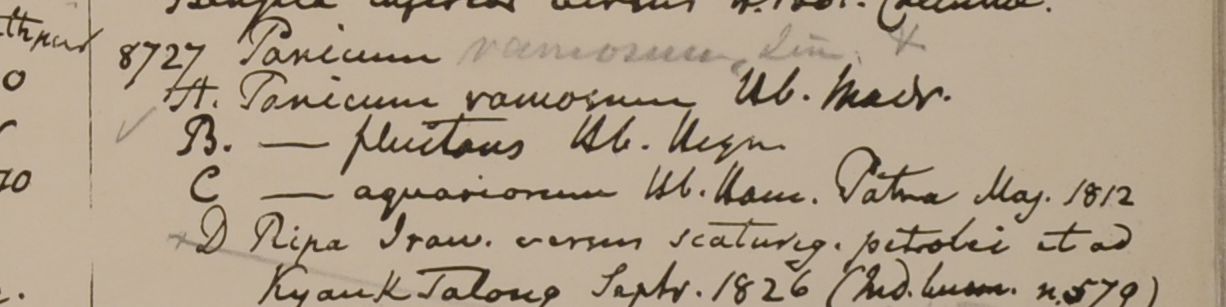 8727 Panicum ramosum, Lin. x
A. Panicum ramosum Hb. Madr.
B. — fluitans Hb. Heyn.
C — aquariorum Hb. Ham. Patna Maj. 1812
D Ripa Iraw. versus scaturig. petrolei et ad
Kyauk Talong Septr. 1826 (Ind. burm. n. 579)